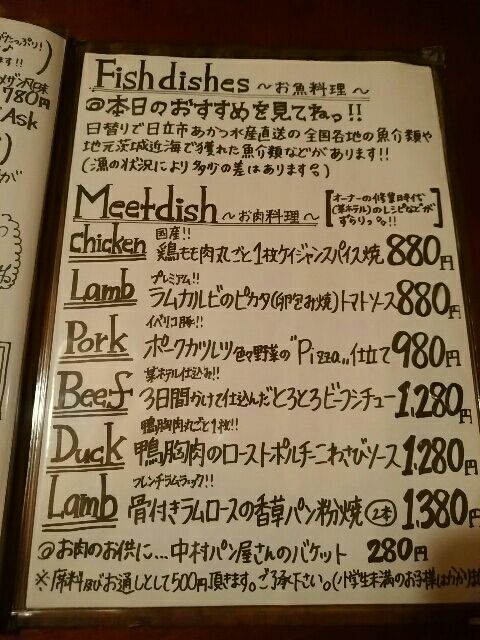 がたっぷり!
780円
Ask
Fish dishes ～お魚料理～
@本日のおすすめを見てねっ!!
日替りで日立市あかつ水産直送の全国各地の魚介類や
地元茨城近海で獲れた魚介類などがあります!!
(漁の状況により多少の差はあります。)
Meetdish ～お肉料理～
[オーナーの修業時代
(某ホテル)のレシピなどが
ずらりっ!!]
国産!!
chicken 鶏もも肉丸ごと1枚ケイジャンスパイス焼 880円
プレミアム!!
Lamb ラムカルビのピカタ(卵包み焼)トマトソース 880円
イベリコ豚!!
Pork ポークカツレツ色々野菜の"Pizza"仕立て 980円
某ホテル仕込み!!
Beef 3日間かけて仕込んだとろとろビーフシチュー 1,280円
鴨胸肉丸ごと1枚!!
Duck 鴨胸肉のローストポルチーニわさびソース 1,280円
フレンチラムラック!!
Lamb 骨付きラムロースの香草パン粉焼 2本 1,380円
@お肉のお供に…中村パン屋さんのバケット 280円
※席料及びお通しとして500円頂きます。ご了承下さい。(小学生未満のお子様はかかりま